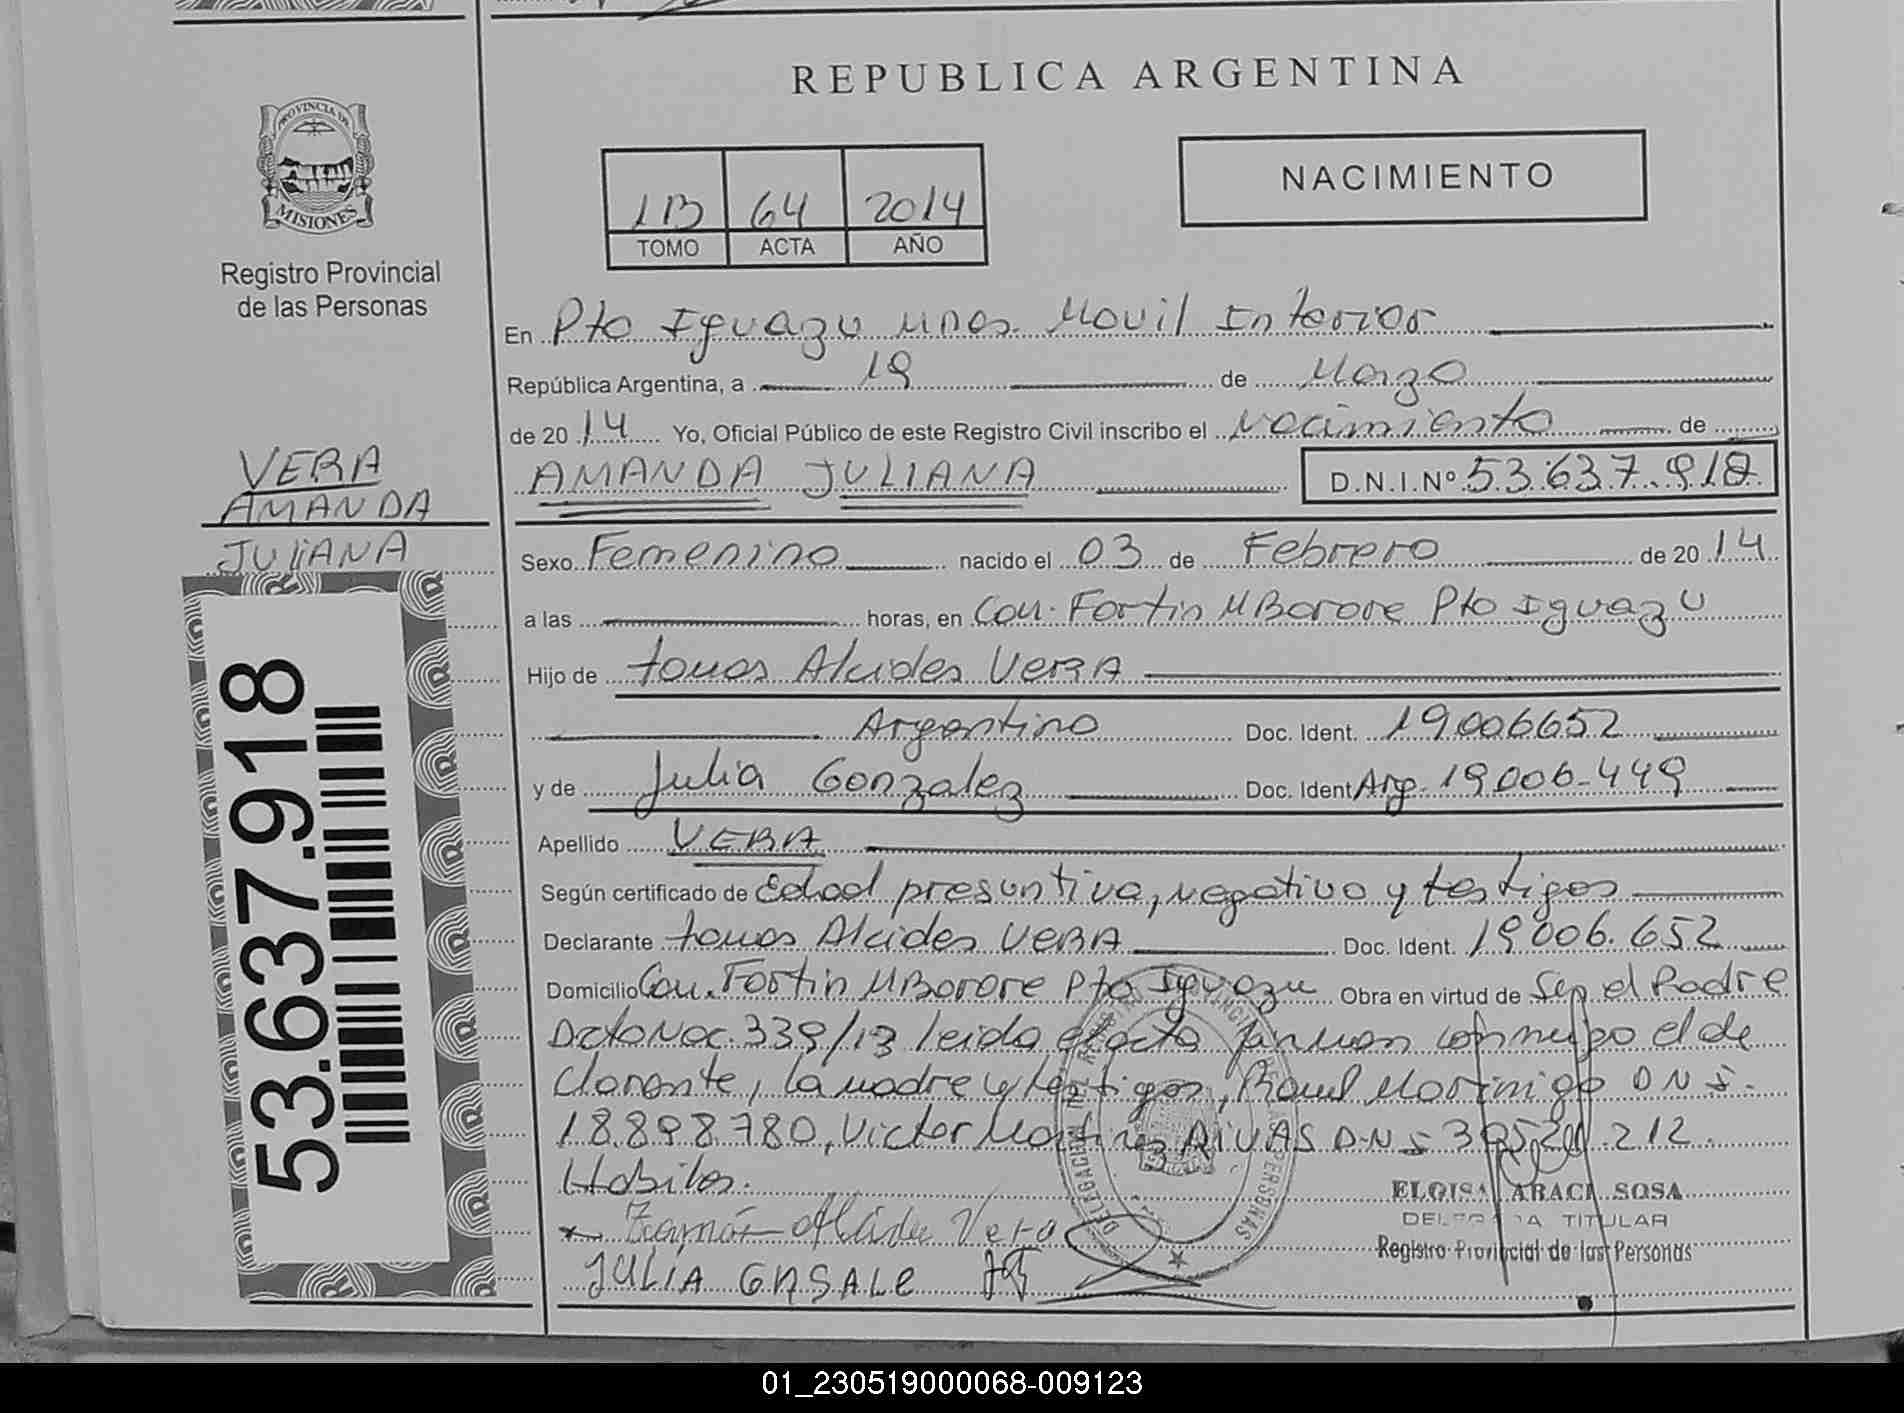 REPUBLICA ARGENTINA
PROVINCIA DE
MISIONES
Registro Provincial
de las Personas
NACIMIENTO
1B 64 2014
TOMO ACTA AÑO
En Pto Iguazu Mnes. Movil Interior
República Argentina, a 19 de Marzo
de 2014 Yo, Oficial Público de este Registro Civil inscribo el Nacimiento de
AMANDA JULIANA D.N.I.Nº 53.637.918
VERA
AMANDA
JULIANA
53.637.918
Sexo Femenino nacido el 03 de Febrero de 2014
a las horas, en Com. Fortin MBorore Pto Iguazu
Hijo de Alcides VERA
Argentino Doc. Ident. 19006652
y de Julia Gonzalez Doc. Ident Arg. 19.006.449
Apellido VERA
Según certificado de Edad presuntiva, negativo y testigos
Declarante Alcides VERA Doc. Ident. 19006.652
Domicilio Com. Fortin MBorore Pto Iguazu Obra en virtud de Ser el Padre
Dcto Nac. 339/13 leida el acta firman conmigo el de
clarante, la madre y testigos, Raul Morinigo DNI.
18898780, Victor Martinez RIVAS DNI 212.
Habiles.
Ramón Alcides Vera
JULIA GASALE
ELOISA ARACI SOSA
DELEGADA TITULAR
Registro Provincial de las Personas
01_230519000068-009123